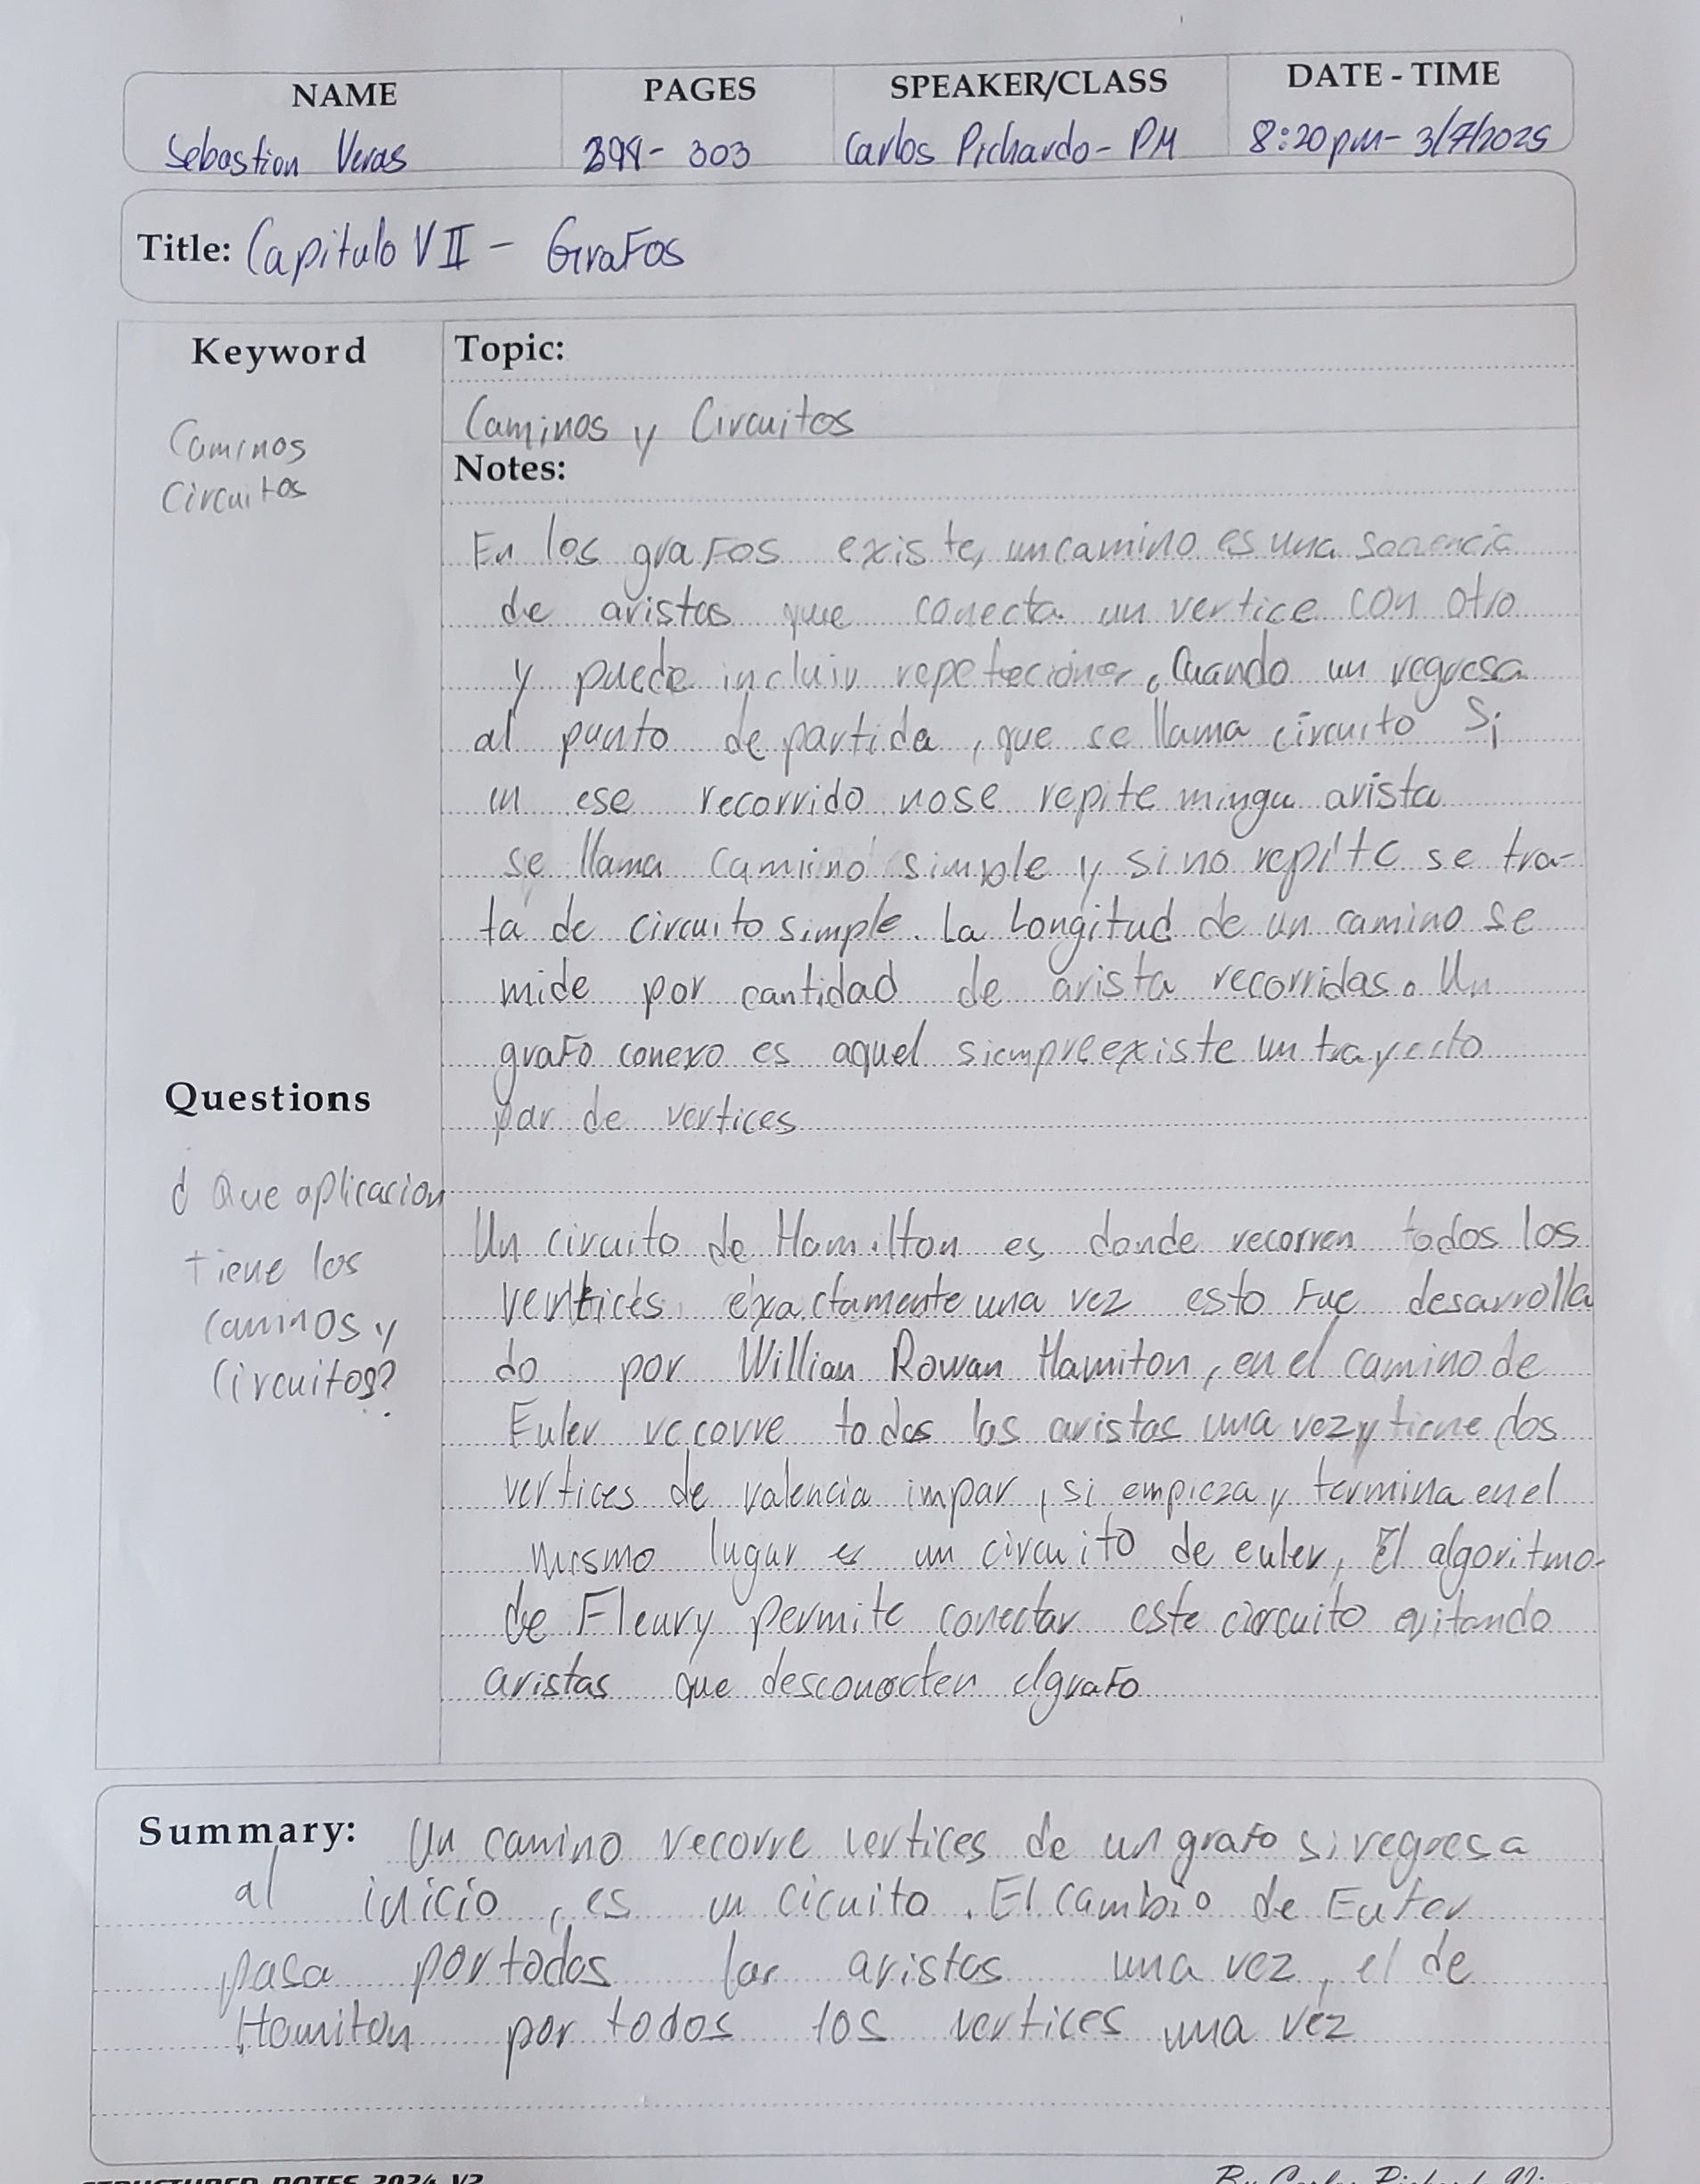 NAME PAGES SPEAKER/CLASS DATE - TIME
Sebastian Veras 298- 303 Carlos Pichardo- PM 8:20pm- 3/7/2025
Title: Capitulo VII - GraFos
Keyword
Caminos
Circuitos
Topic:
Caminos y Circuitos
Notes:
En los graFos existe, un camino es una
de aristas que conecta un vertice con otro
y puede incluir repeteciones. Cuando un regresa
al punto de partida, que se llama circuito Si
en ese recorrido nose repite mingu arista
se llama camino simple y si no repite se tra-
ta de circuito simple. La Longitud de un camino se
mide por cantidad de arista recorridas. Un
graFo conexo es aquel siempre existe un trayecto
par de vertices
Questions
¿ Que aplicacion
tiene los
caminos y
Circuitos?
Un circuito de Hamilton es donde recorren todos los
vertices exactamente una vez esto Fue desarrolla
do por Willian Rowan Hamiton, en el camino de
Euler recorre todas las aristas una vez y tiene dos
vertices de valencia impar, si empieza y termina en el
mismo lugar es un circuito de euler, El algoritmo-
de Fleury permite conectar este circuito evitando
aristas que desconecten el graFo
Summary: Un camino recorre vertices de un graFo si regresa
al inicio, es un cicuito. El cambio de Euler
pasa por todas las aristas una vez, el de
Hamiton por todos los vertices una vez
STRUCTURED NOTES 2024 V2
By Carlos Pichardo